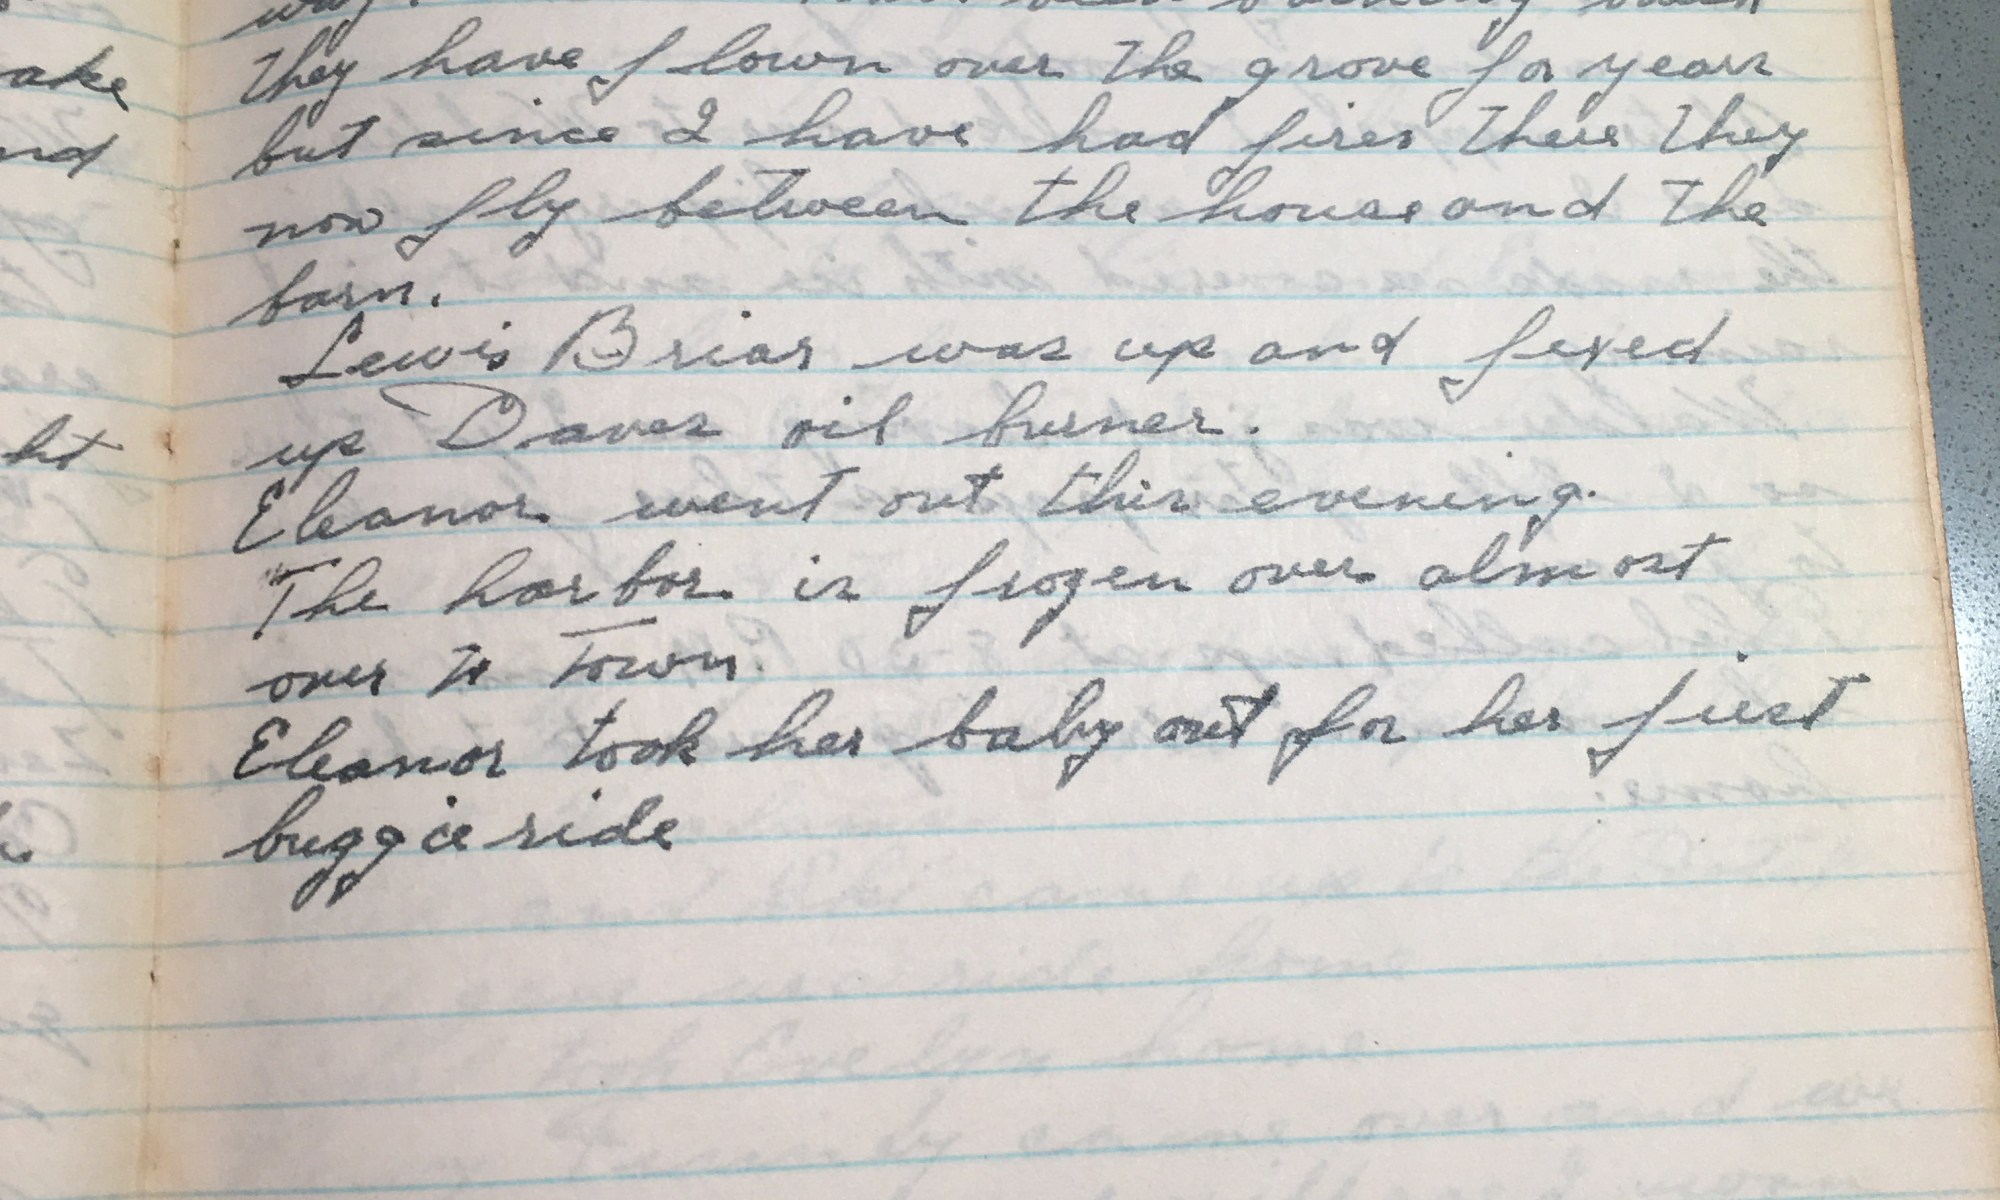 they have flown over the grove for years
but since I have had fires there they
now fly between the house and the
barn.
Lewis Briar was up and fixed
up Daves oil burner.
Eleanor went out this evening.
The harbor is frozen over almost
over to Town.
Eleanor took her baby out for her first
buggie ride
ake
nd
ht